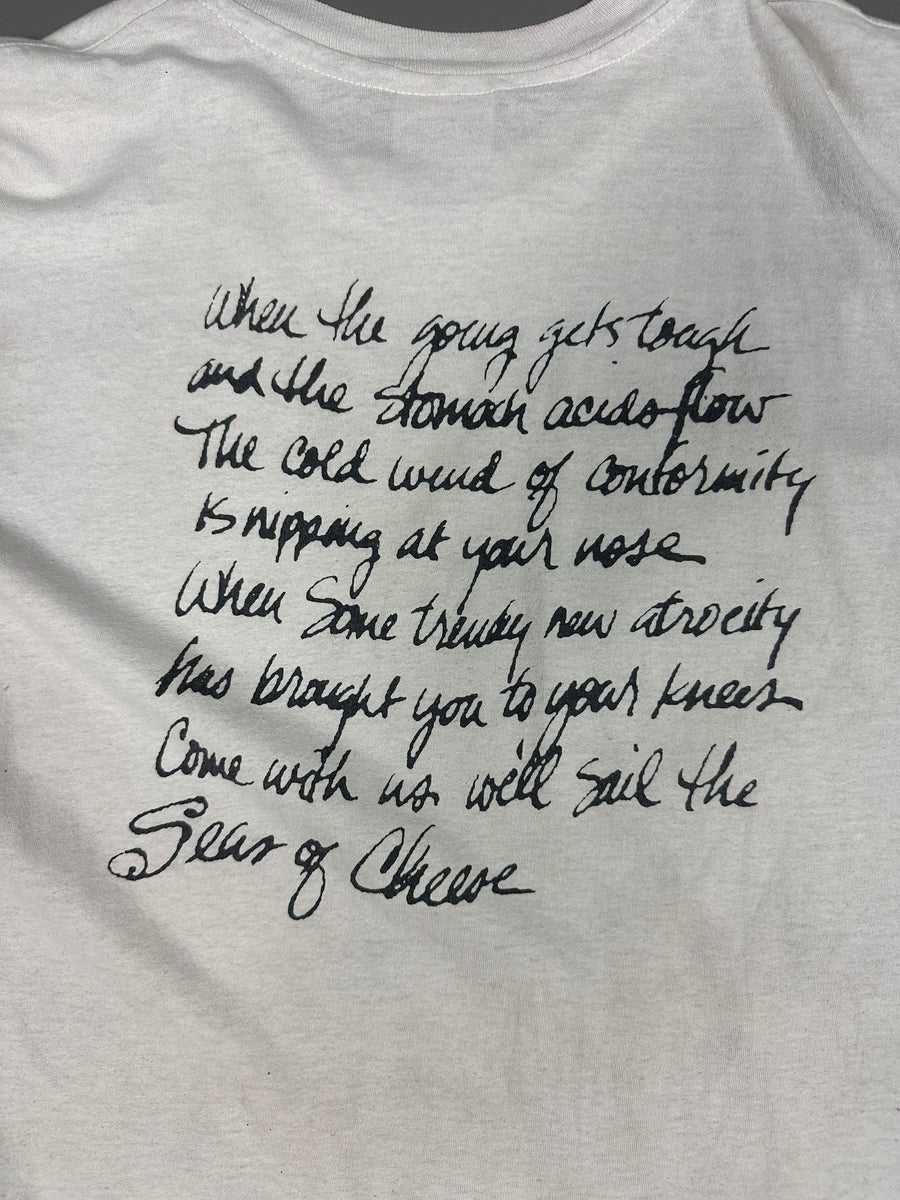 When the going gets tough
and the Stomach acids flow
The cold wind of conformity
Is nipping at your nose
When Some trendy new atrocity
has brought you to your knees
Come with us we'll Sail the
Seas of Cheese